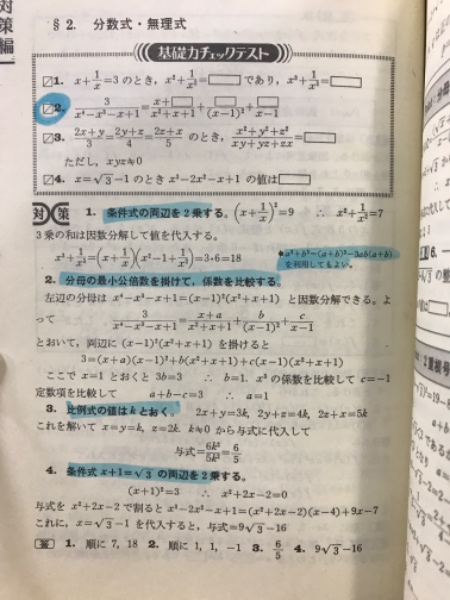 対策編
§2. 分数式・無理式
基礎力チェックテスト
1. x+1/x=3 のとき, x²+1/x²=□ であり, x³+1/x³=□
2. 3/(x⁴-x³-x+1)=(x+□)/(x²+x+1)+□/(x-1)²+□/(x-1)
3. (2x+y)/3=(2y+z)/4=(2z+x)/5 のとき, (x²+y²+z²)/(xy+yz+zx)=□
ただし, xyz≠0
4. x=√3-1 のとき x³-2x²-x+1 の値は□
対策 1. 条件式の両辺を2乗する。(x+1/x)²=9 ∴ x²+1/x²=7
3乗の和は因数分解して値を代入する。
x³+1/x³=(x+1/x)(x²-1+1/x²)=3・6=18
*a³+b³=(a+b)³-3ab(a+b)
を利用してもよい。
2. 分母の最小公倍数を掛けて, 係数を比較する。
左辺の分母は x⁴-x³-x+1=(x-1)²(x²+x+1) と因数分解できる。よ
って 3/(x⁴-x³-x+1)=(x+a)/(x²+x+1)+b/(x-1)²+c/(x-1)
とおいて, 両辺に (x-1)²(x²+x+1) を掛けると
3=(x+a)(x-1)²+b(x²+x+1)+c(x-1)(x²+x+1)
ここで x=1 とおくと 3b=3 ∴ b=1. x³ の係数を比較して c=-1
定数項を比較して a+b-c=3 ∴ a=1
3. 比例式の値は k とおく。 2x+y=3k, 2y+z=4k, 2z+x=5k
これを解いて x=y=k, z=2k. k≠0 から与式に代入して
与式=6k²/5k²=6/5
4. 条件式 x+1=√3 の両辺を2乗する。
(x+1)²=3 ∴ x²+2x-2=0
与式を x²+2x-2 で割ると x³-2x²-x+1=(x²+2x-2)(x-4)+9x-7
これに, x=√3-1 を代入すると, 与式=9√3-16
答 1. 順に 7, 18 2. 順に 1, 1, -1 3. 6/5 4. 9√3-16